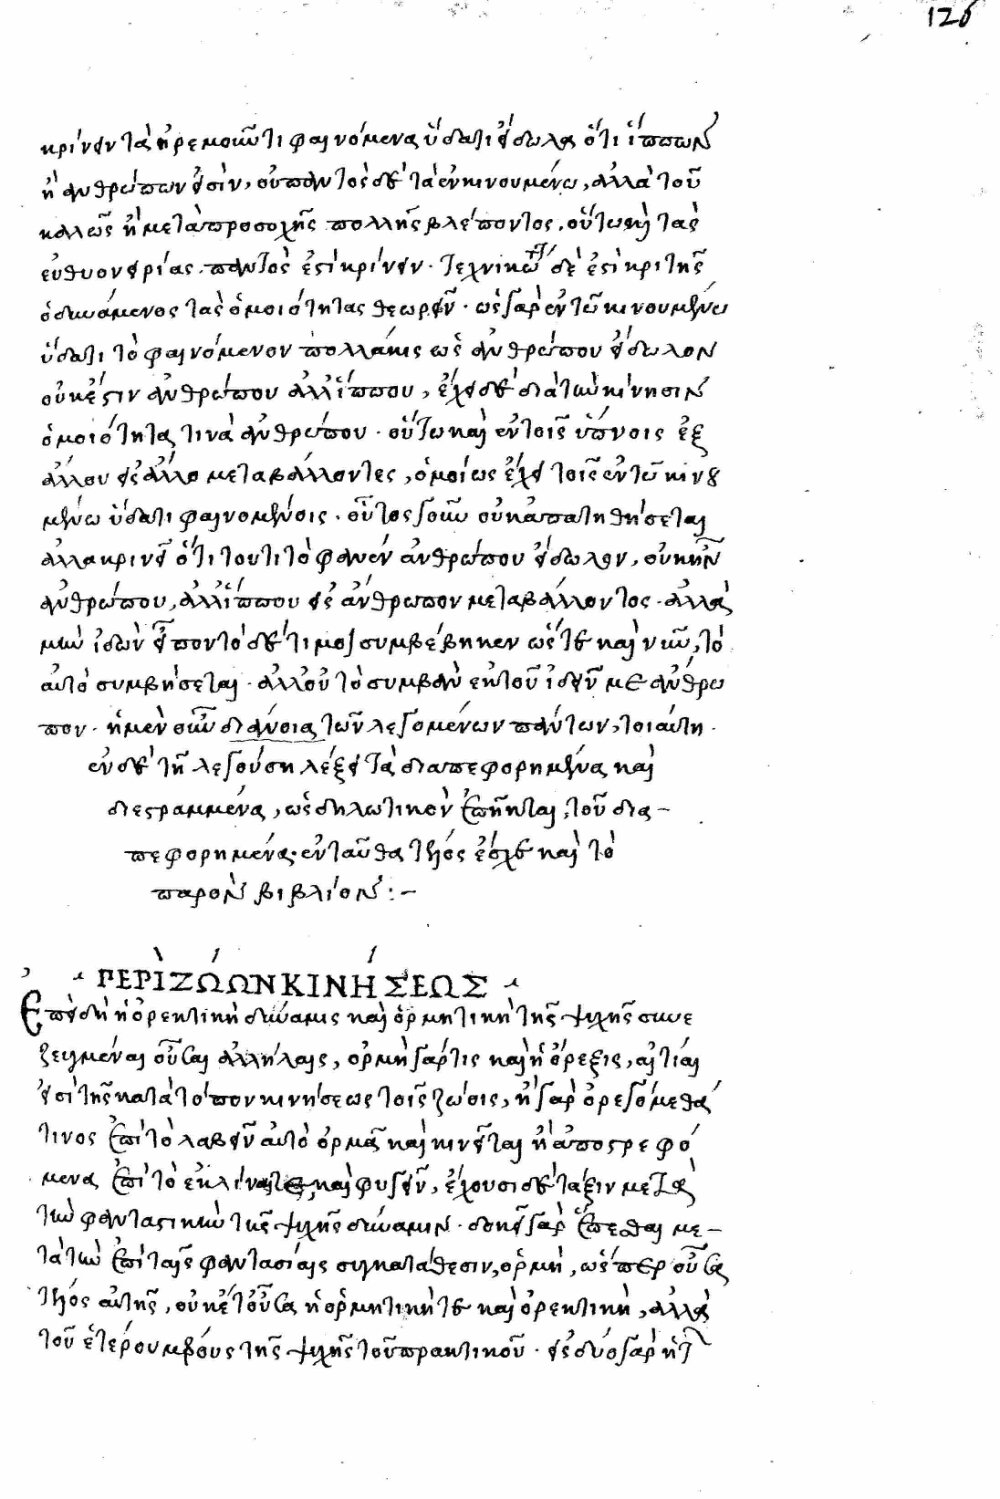 126
κρίνειν τὰ ἠρεμοῦντι φαινόμενα ὕδατι εἴδωλα ὅτι ἵππων
ἢ ἀνθρώπων εἰσὶν, οὐ παντὸς δὲ τὰ ἐν κινουμένω, ἀλλὰ τοῦ
καλῶς ἢ μετὰ προσοχῆς πολλῆς βλέποντος, οὕτω καὶ τὰς
εὐθυονειρίας παντός ἐστι κρίνειν. τεχνικώτ δὲ ἐστὶ κριτὴς
ὁ δυνάμενος τὰς ὁμοιότητας θεωρεῖν. ὡς γὰρ ἐν τῶ κινουμένω
ὕδατι τὸ φαινόμενον πολλάκις ὡς ἀνθρώπου εἴδωλον
οὐκ ἔστιν ἀνθρώπου ἀλλ' ἵππου, ἔχει δὲ διὰ τὴν κίνησιν
ὁμοιότητας τινὰ ἀνθρώπου. οὕτω καὶ ἐν τοῖς ὕπνοις ἐξ
ἄλλου εἰς ἄλλο μεταβάλλοντες, ὁμοίως ἔχει τοῖς ἐν τῶ κινου
μένω ὕδατι φαινομένοις. οὗτος γοῦν οὐκ ἀπατηθήσεται
ἀλλὰ κρινεῖ ὅτι τουτὶ τὸ φανὲν ἀνθρώπου εἴδωλον, οὐκ ἦν
ἀνθρώπου, ἀλλ' ἵππου εἰς ἄνθρωπον μεταβάλλοντος. ἀλλὰ
μὴν ἰδὼν ἵππον τὸ δέ τι μοι συμβέβηκεν ὥστε καὶ νῦν, τὸ
αὐτὸ συμβήσεται. ἀλλ' οὐ τὸ συμβὰν ἐκ τοῦ ἰδεῖν με ἄνθρω
πον. ἡ μὲν οὖν διάνοια τῶν λεγομένων πάντων, τοιαύτη.
ἐν δὲ τῆ λεγούση λέξει τὰ διαπεφορημένα καὶ
διεστραμμένα, ὡς δηλωτικὸν ἐπῆκται, τοῦ δια-
πεφορημένα. ἐνταῦθα τέλος ἔσχε καὶ τὸ
παρὸν βιβλίον:-
ΠΕΡῚ ΖΏΩΝ ΚΙΝΉΣΕΩΣ
Ἐπειδὴ ἡ ὀρεκτικὴ δύναμις καὶ ὁρμητικὴ τῆς ψυχῆς συνε
ζευγμέναι οὖσαι ἀλλήλαις, ὁρμὴ γάρ τις καὶ ἡ ὄρεξις, αἰτίαι
εἰσὶ τῆς κατὰ τόπον κινήσεως τοῖς ζώοις, ἢ γὰρ ὀρεγόμεθά
τινος ἐπὶ τὸ λαβεῖν αὐτὸ ὁρμᾶ καὶ κινεῖται ἢ ἀποστρεφό
μενα ἐπὶ τὸ ἐκκλῖναί τε καὶ φυγεῖν, ἔχουσι δὲ τάξιν μετὰ
τὴν φανταστικὴν τῆς ψυχῆς δύναμιν. δοκεῖ γὰρ ἕπεσθαι με-
τὰ τὴν ἐπὶ ταῖς φαντασίαις συγκατάθεσιν, ὁρμὴ, ὥσπερ οὖσα
τέλος αὐτῆς, οὐκέτ' οὖσα ἡ ὁρμητική τε καὶ ὀρεκτικὴ, ἀλλὰ
τοῦ ἑτέρου μέρους τῆς ψυχῆς τοῦ πρακτικοῦ. εἰς δύο γὰρ ἡ